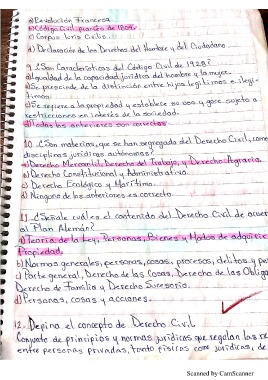 a) Revolución Francesa
b) Código Civil francés de 1804.
c) Corpus Iuris Civilis.
d) Declaración de los Derechos del Hombre y del Ciudadano
9. ¿Son Características del Código Civil de 1928?
a) Igualdad de la capacidad jurídica del hombre y la mujer.
b) Se prescinde de la distinción entre hijos legítimos e ilegí-
timos.
c) Se refiere a la propiedad y establece su uso y goce sujeto a
restricciones en interés de la sociedad.
d) Todas las anteriores son correctas
10. ¿Son materias, que se han segregado del Derecho Civil, como
disciplinas jurídicas autónomas?
a) Derecho Mercantil, Derecho del Trabajo, y Derecho Agrario.
b) Derecho Constitucional y Administrativo.
c) Derecho Ecológico y Marítimo.
d) Ninguna de las anteriores es correcto.
11. ¿Señale cuál es el contenido del Derecho Civil de acuer
al Plan Alemán?
a) Teoría de la Ley, Personas, Bienes y Modos de adquirir
Propiedad.
b) Normas generales, personas, cosas, procesos, delitos y pe
c) Parte general, Derecho de las Cosas, Derecho de las Obliga
Derecho de Familia y Derecho Sucesorio.
d) Personas, cosas y acciones.
12. Defina el concepto de Derecho Civil
Conjunto de principios y normas jurídicas que regulan las re
entre personas privadas, tanto físicas como jurídicas, de
Scanned by CamScanner